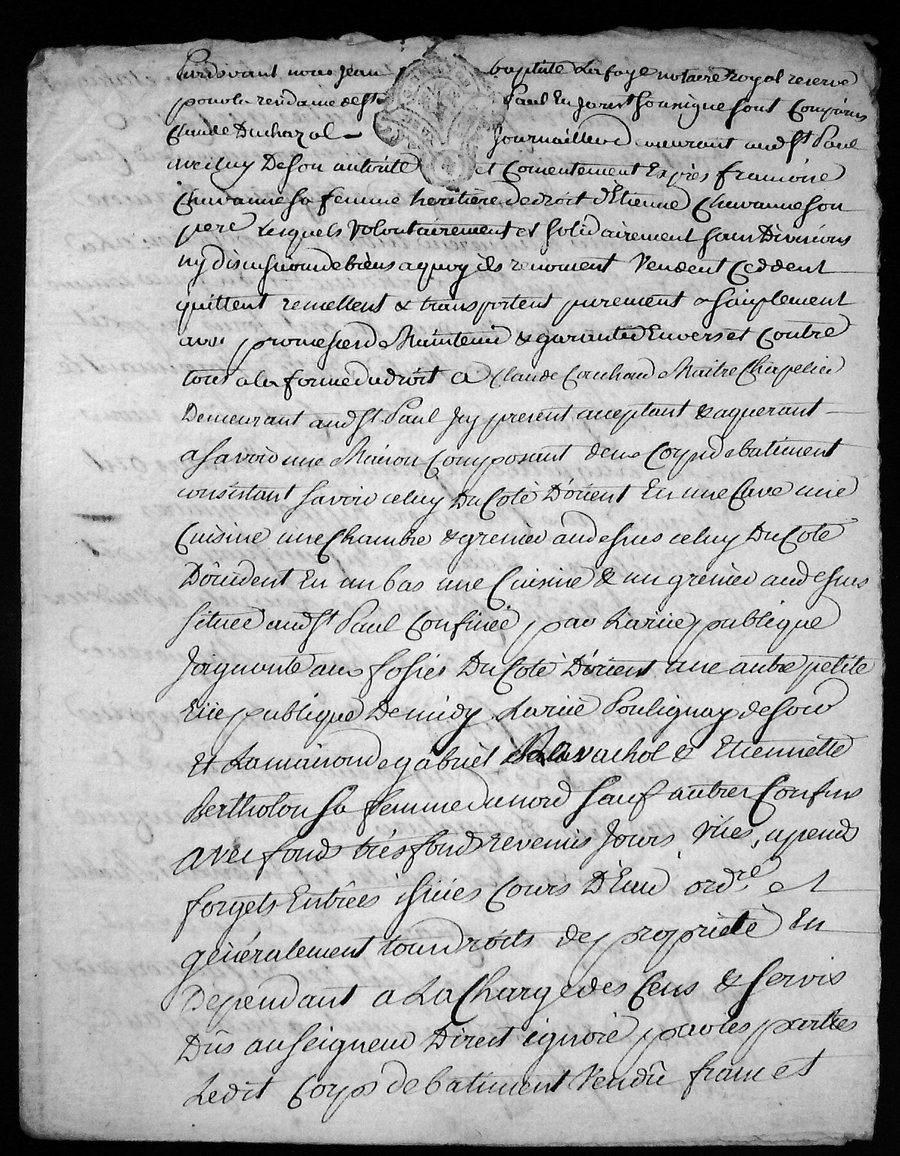 Pardevant nous Jean baptiste Lafaye notaire royal reservé
pour la rendance de St Paul En Jarest Sousigné sont Comparus
Claude Duchazal Journaillier demeurant audt St Paul
avec luy De son autorité et Consentement Exprés francoise
Chavanne sa femme heritière de droit d'Etienne Chavanne son
pere Lesquels volontairement et solidairement sans Divisions
ny discussion de biens a quoy ils renoncent vendent Ceddent
quittent remettent & transportent purement & simplement
avec promesse de Maintenir & garantir Envers et Contre
tous a la forme du droit a Claude Couchoud Maitre Chapelier
Demeurant audt St Paul Icy present acceptant & aquerant
a savoir une Maison Composant deux Corps de batiment
consistant savoir celuy Du Coté D'orient En une Cave une
Cuisine une Chambre & grenier au dessus celuy Du Coté
D'occident En un bas une Cuisine & un grenier au dessus
située audt St Paul Confinée par La rüe publique
Joignante aux fossés Du Coté D'orient une autre petite
rüe publique De midy La rüe Poulignay de soir
Et La maison de gabriel Ravachol & Etiennette
Bertholon sa femme du nord sauf autres Confins
avec fonds tres fonds revenus Jours, vües, apends
forgets Entrées issües Cours D'Eau ordre et
généralement tous droits de proprieté En
Dependant a La Charge des Cens & servis
Dûs au seigneur Direct ignoré par les parties
Ledit Corps de batiment vendû franc et